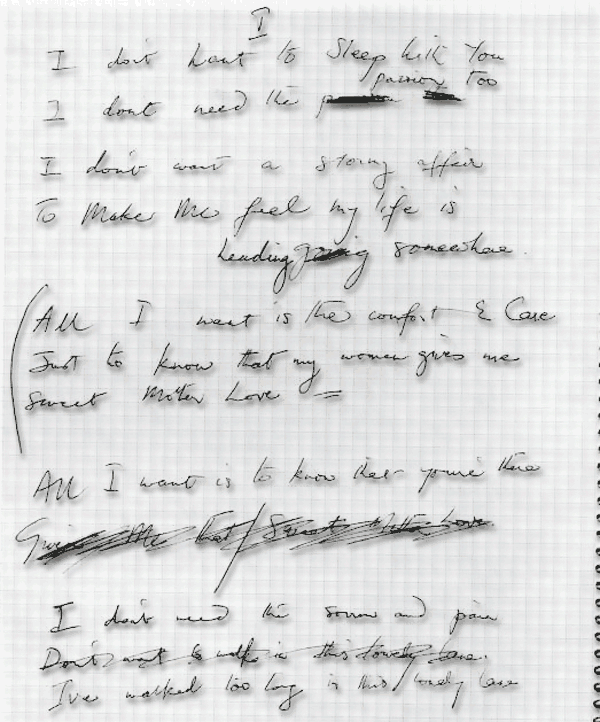 I
I don't want to sleep with you
passion too
I dont need the
I don't want a stormy affair
To Make Me feel my life is
heading going somewhere.
All I want is the comfort & Care
Just to know that my woman gives me
Sweet Mother Love =
All I want is to know that you're there
Giving Me that Sweet Mother Love.
I don't need the sorrow and pain
Don't want to walk in this lonely lane.
I've walked too long in this lonely lane